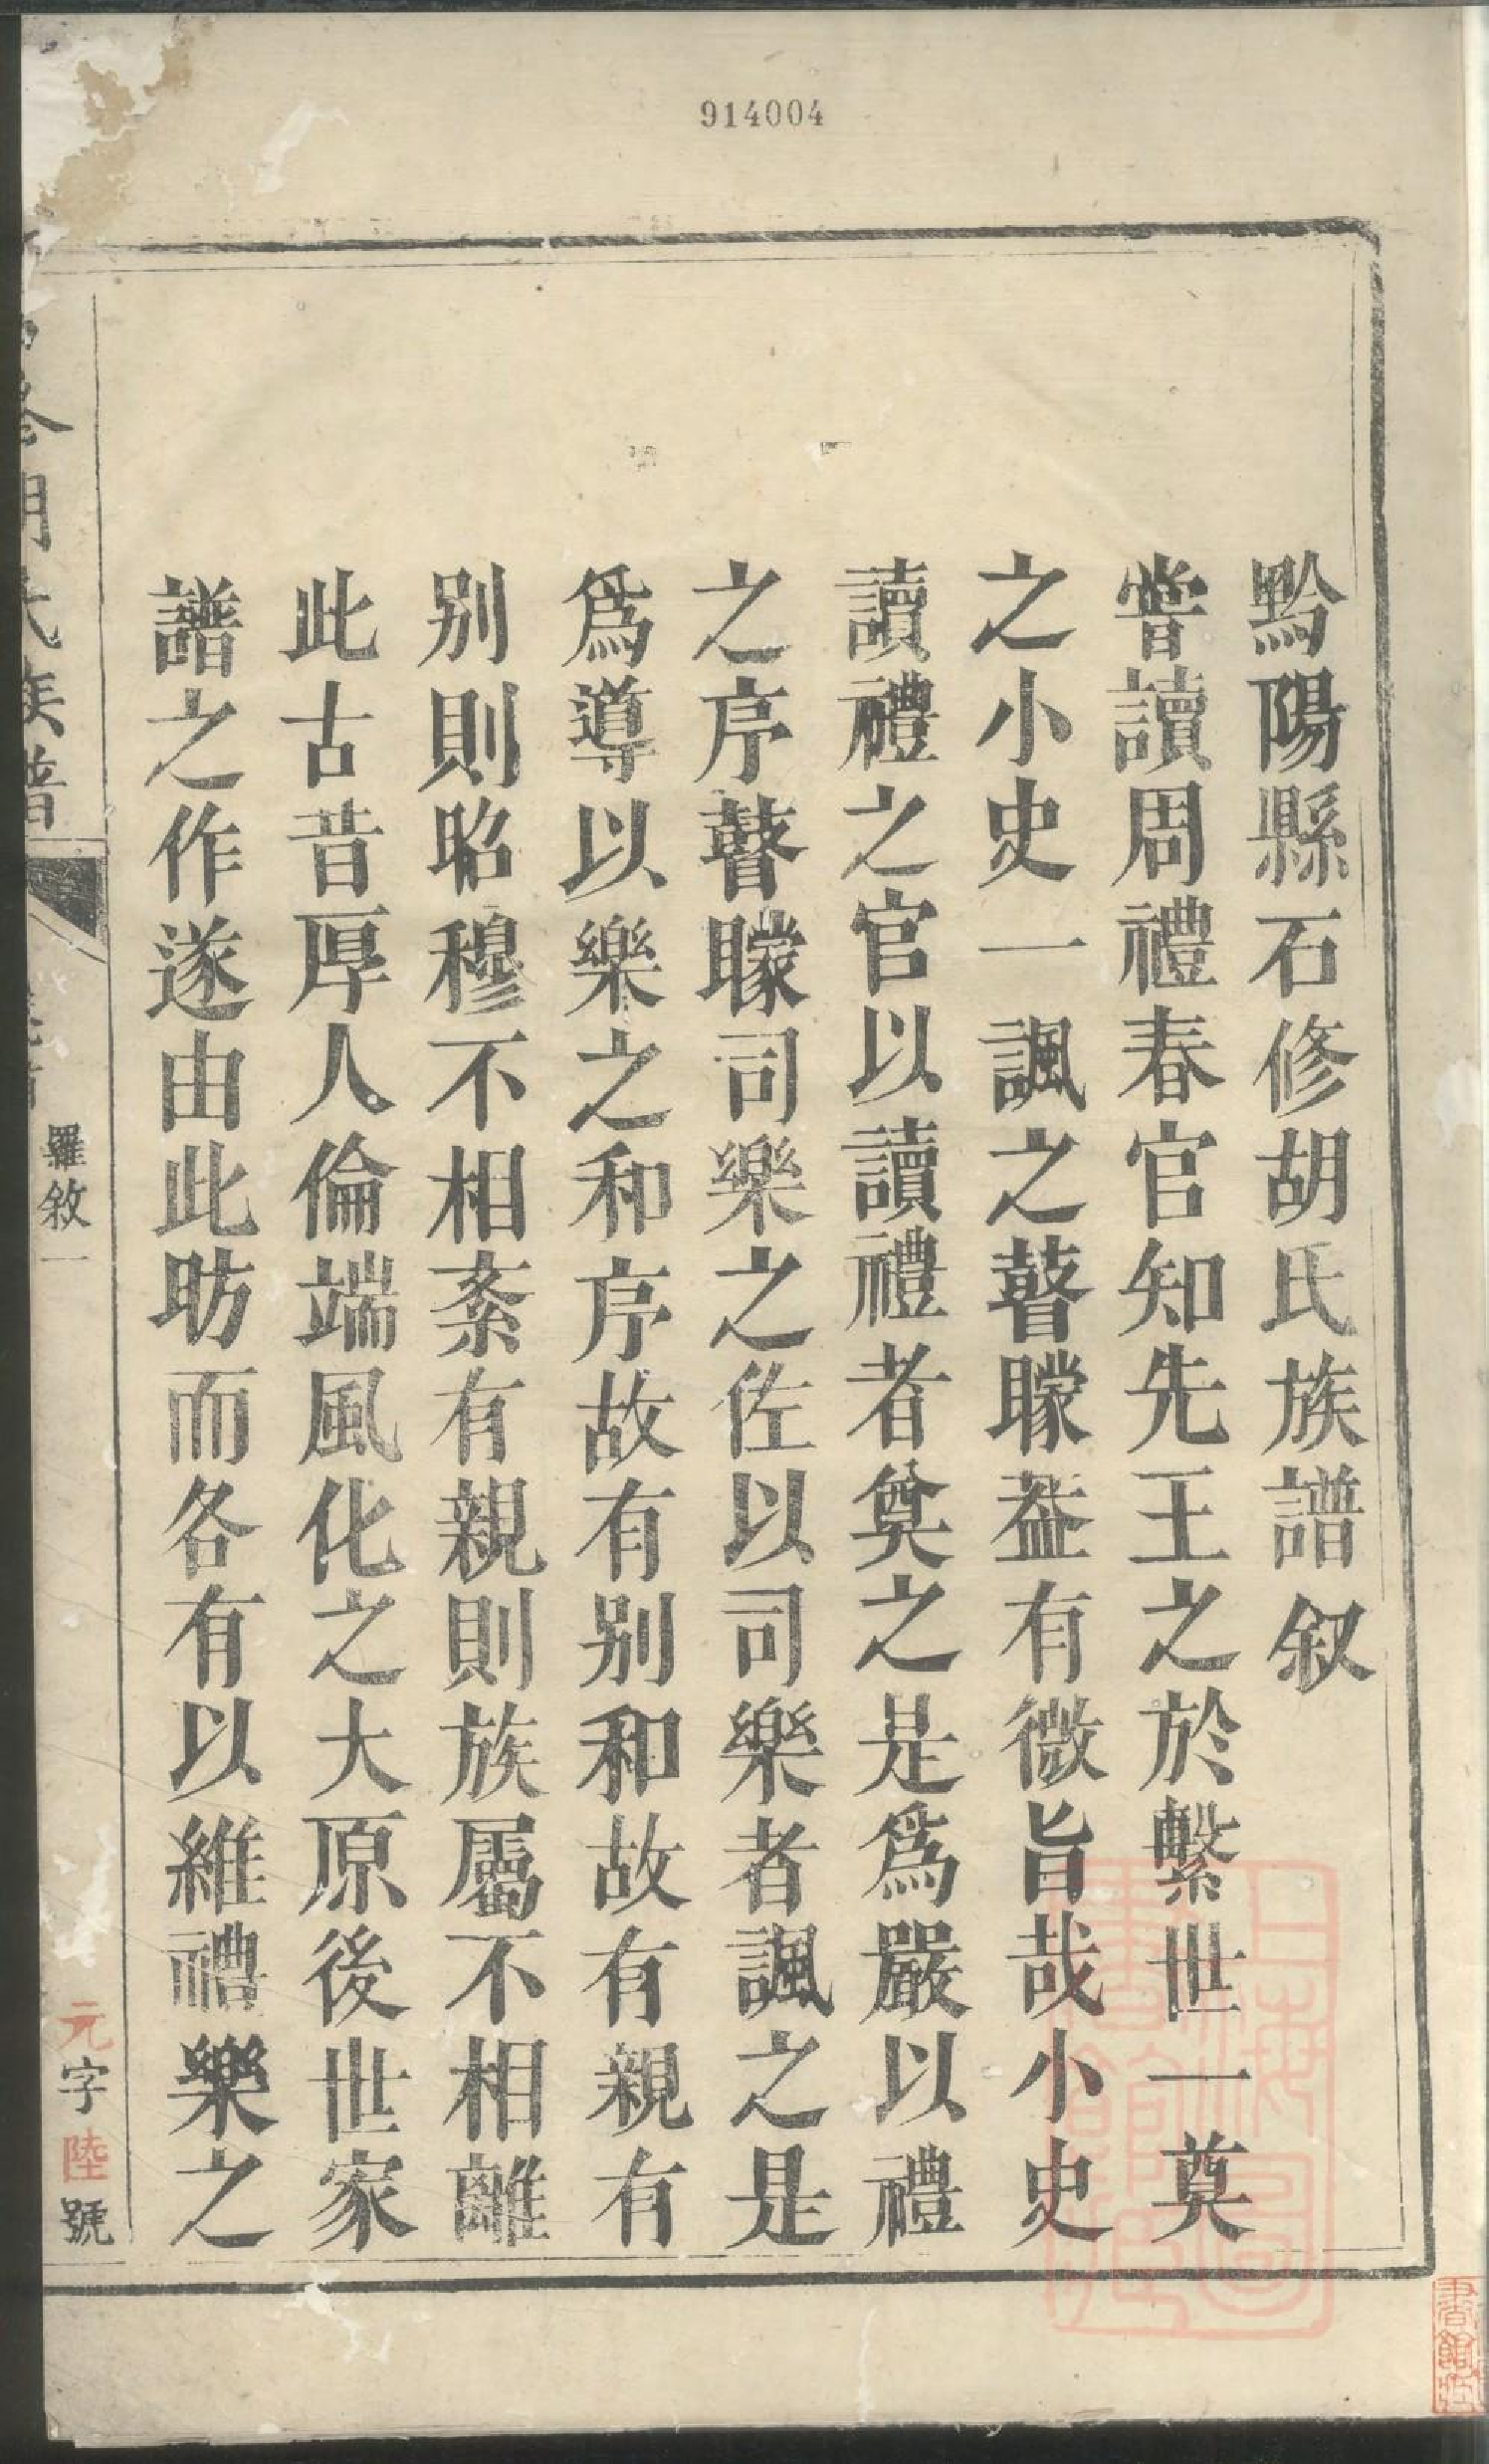 914004
黔陽縣石修胡氏族譜叙
甞讀周禮春官知先王之於繫世一奠
之小史一諷之瞽矇葢有微旨哉小史
讀禮之官以讀禮者奠之是爲嚴以禮
之序瞽矇司樂之佐以司樂者諷之是
爲導以樂之和序故有别和故有親有
别則昭穆不相紊有親則族屬不相離
此古昔厚人倫端風化之大原後世家
譜之作遂由此昉而各有以維禮樂之
修胡氏族譜
羅敘一
元字陸號
上海圖書館藏
書館藏